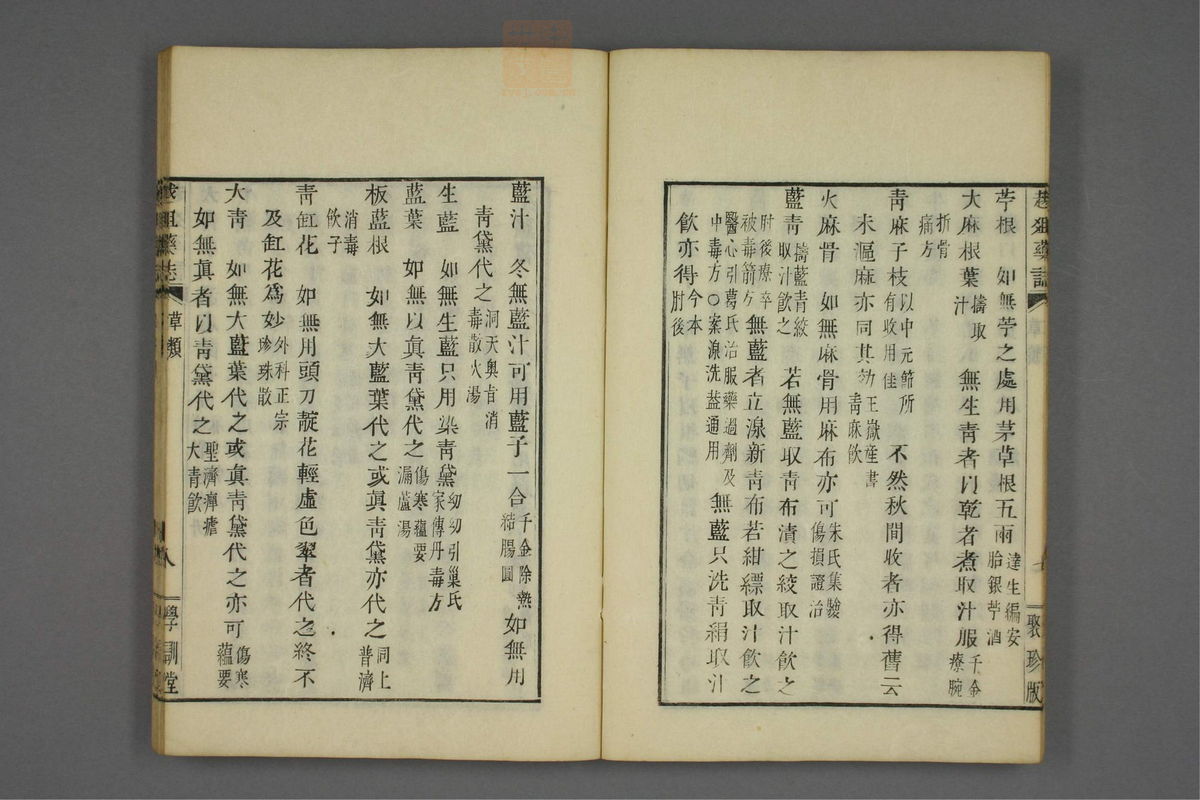 苧根　如無苧之處用茅草根五兩達生編安胎銀苧酒
大麻根葉擣取汁　無生靑者以乾者煮取汁服千金療腕
折骨痛方
靑麻子枝以中元節所有收用佳　不然秋間收者亦得舊云
未漚麻亦同其効王嶽産書靑麻飮
火麻骨　如無麻骨用麻布亦可朱氏集驗傷損證治
藍靑擣藍靑絞取汁飮之　若無藍取靑布漬之絞取汁飮之
肘後療卒被毒箭方無藍者立湶新靑布若紺縹取汁飮之
醫心引葛氏治服藥過劑及中毒方〇案湶洗蓋通用　無藍只洗靑絹取汁
飮亦得今本肘後
聚珍版
藍汁　冬無藍汁可用藍子一合千金除熱結腸圓　如無用
靑黛代之洞天奥旨消毒散火湯
生藍　如無生藍只用染靑黛幼幼引巢氏家傳丹毒方
藍葉　如無以眞靑黛代之傷寒蘊要漏蘆湯
板藍根　如無大藍葉代之或眞靑黛亦代之同上普濟
消毒飮子
靑缸花　如無用頭刀靛花輕虛色翠者代之終不
及缸花爲妙外科正宗珍珠散
大靑　如無大藍葉代之或眞靑黛代之亦可傷寒蘊要
如無眞者以靑黛代之聖濟癉瘧大靑飮
草類
八
學訓堂